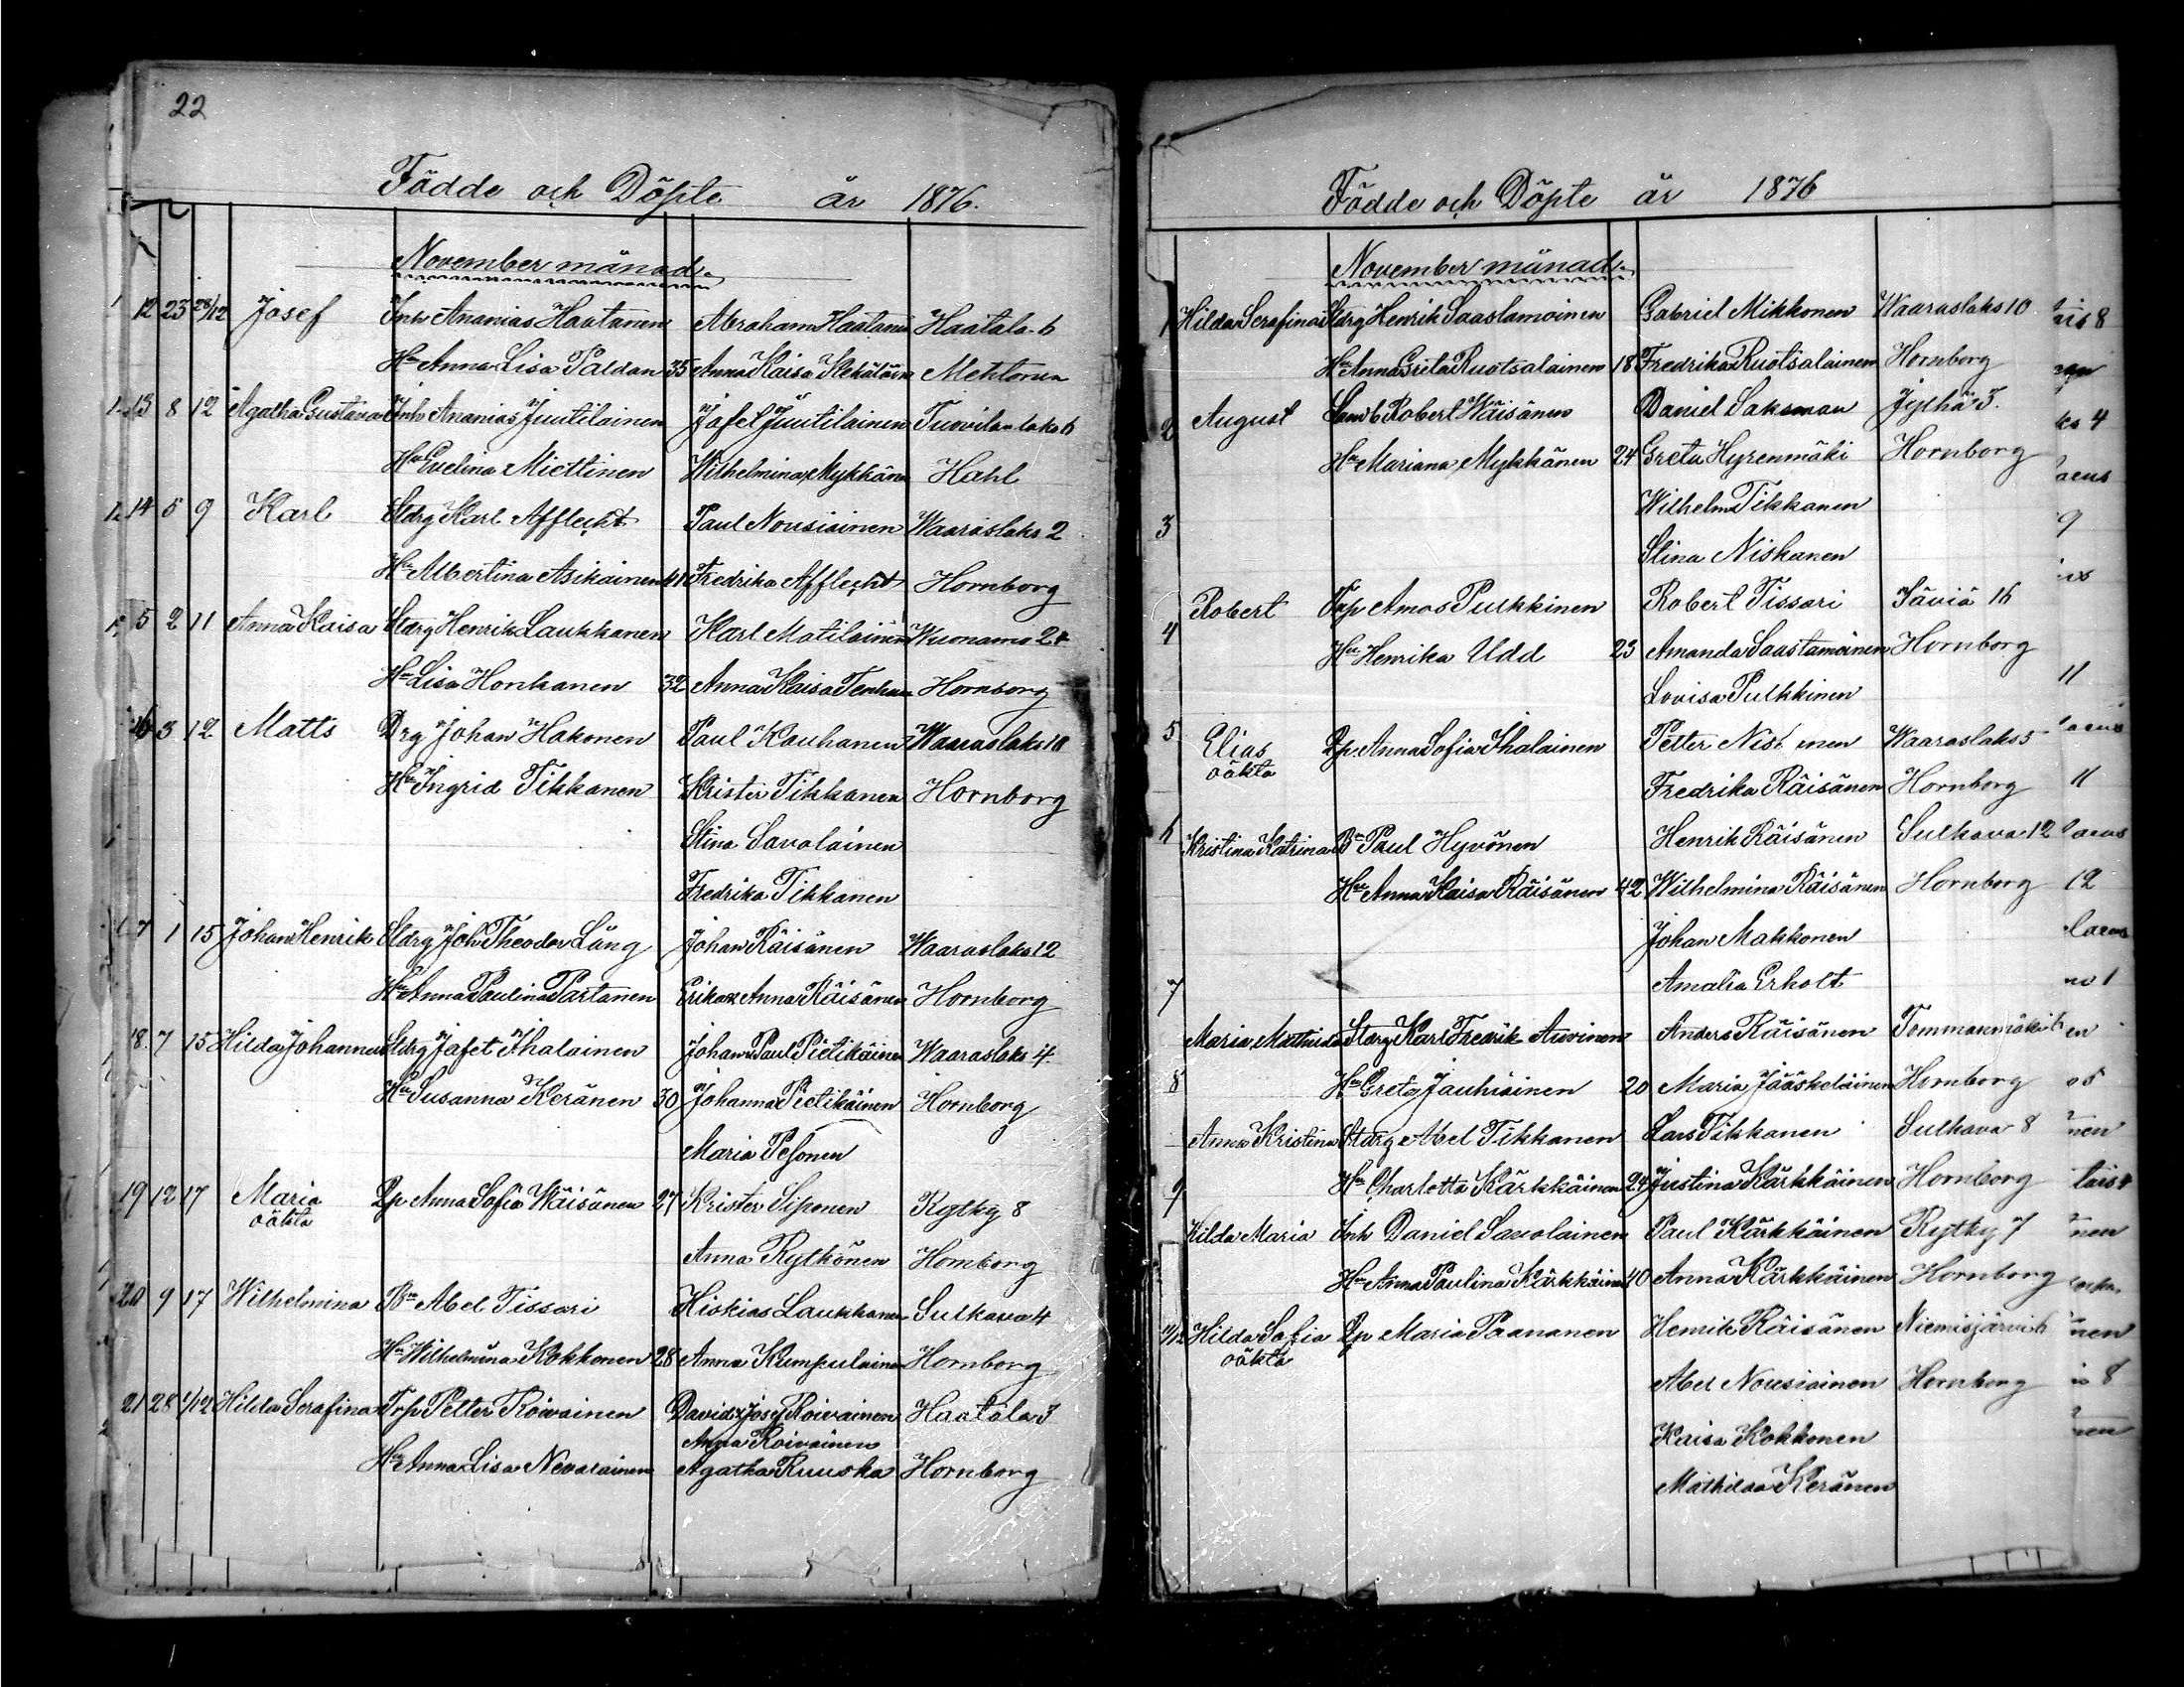 22
Födde och Döpte år 1876.
November månad.
12 23 28/12 Josef Inh Ananias Haatanen Abraham Haatanen Haatala 6
Hu Anna Lisa Paldan 35 Anna Kaisa Kekäläinen
13 8 12 Agatha Gustava Inh Ananias Juutilainen Jafet Juutilainen Tuovilanlaks 6
Hu Evelina Miettinen Wilhelmina Mykkänen Hahl
14 5 9 Karl Stdrg Karl Afflecht Paul Nousiainen Waaraslaks 2
Hu Albertina Asikainen 41 Fredrika Afflecht Hornborg
5 2 11 Anna Kaisa Stdrg Henrik Laukkanen Karl Matilainen Wuonamo 24
Hu Lisa Honkanen 32 Anna Kaisa Hornborg
16 3 12 Matts Drg Johan Hakonen Paul Kauhanen Waaraslaks 10
Hu Ingrid Tikkanen Krister Tikkanen Hornborg
Stina Savolainen
Fredrika Tikkanen
17 1 15 Johan Henrik Stdrg Joh Theodor Lång Johan Räisänen Waaraslaks 12
Hu Anna Paulina Partanen Erika & Anna Räisänen Hornborg
18. 7 15 Hilda Johanna Stdrg Jafet Ihalainen Johan & Paul Pietikäinen Waaraslaks 4.
Hu Susanna Keränen 30 Johanna Pietikäinen Hornborg
Maria Pesonen
19 12 17 Maria Pp Anna Sofia Wäisänen 27 Krister Siponen Rytky 8
oäkta
Anna Rytkönen Hornborg
20 9 17 Wilhelmina Bn Abel Tissari Hiskias Laukkanen Sulkava 4
Hu Wilhelmina Kokkonen 28 Anna Kumpulainen Hornborg
21 28 1/12 Hilda Serafina Trp Petter Roivainen David & Josef Roivainen Haatala 3
Anna Roivainen
Hu Anna Lisa Nevarainen Agatha Ruuska Hornborg
Födde och Döpte år 1876
November månad.
Hilda Serafina Stdrg Henrik Saastamoinen Gabriel Mikkonen Waaraslaks 10
Hu Anna Greta Ruotsalainen 18 Fredrika Ruotsalainen Hornborg
August Landb Robert Wäisänen Daniel Saksman Jylhä 3.
Hu Mariana Mykkänen 24 Greta Hyrenmäki Hornborg
Wilhelm Tikkanen
Stina Niskanen
Robert Trp Amos Pulkkinen Robert Tissari Säviä 16
Hu Henrika Udd 23 Amanda Saastamoinen Hornborg
Lovisa Pulkkinen
Elias Pp. Anna Sofia Ihalainen Petter Waaraslaks 5
oäkta
Fredrika Räisänen Hornborg
Kristina Katrina Bn Paul Hyvönen Henrik Räisänen Sulkava 12
Hu Anna Kaisa Räisänen 42 Wilhelmina Räisänen Hornborg
Johan Makkonen
Amalia Erholt
Maria Mathilda Stdrg Karl Fredrik Auvinen Anders Räisänen Tommanmäki 6
Hu Greta Jauhiainen 20 Maria Jääskeläinen Hornborg
Anna Kristina Stdrg Abel Tikkanen Lars Tikkanen Sulkava 8
Hu Charlotta Kärkkäinen 24 Justina Kärkkäinen Hornborg
Hilda Maria Inh Daniel Savolainen Paul Kärkkäinen Rytky 7
Hu Anna Paulina Kärkkäinen 40 Anna Kärkkäinen Hornborg
Hilda Sofia Pp Maria Paananen Henrik Räisänen Niemisjärvi 6
oäkta
Abel Nousiainen Hornborg
Kaisa Kokkonen
Mathilda Keränen